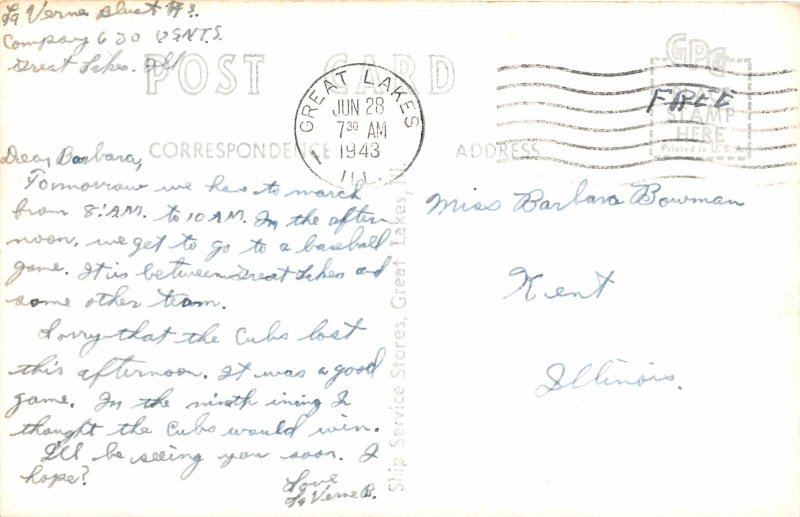 La Verne Blust A.S.
Company 630 U.S.N.T.S.
Great Lakes. Ill
POST CARD
GREAT LAKES
JUN 28
7 30 AM
1943
ILL.
GPC
FREE
STAMP
HERE
Printed in U.S.A.
CORRESPONDENCE
ADDRESS
Dear Barbara,
Tomorrow we have to march
from 8:AM. to 10 AM. In the after
noon, we get to go to a baseball
game. It is between Great Lakes and
some other team.
Sorry that the Cubs lost
this afternoon. It was a good
game. In the ninth ining I
thought the Cubs would win.
I'll be seeing you soon. I
hope?
Love
La Verne B.
Ship Service Stores, Great Lakes, Ill.
Miss Barbara Bowman
Kent
Illinois.